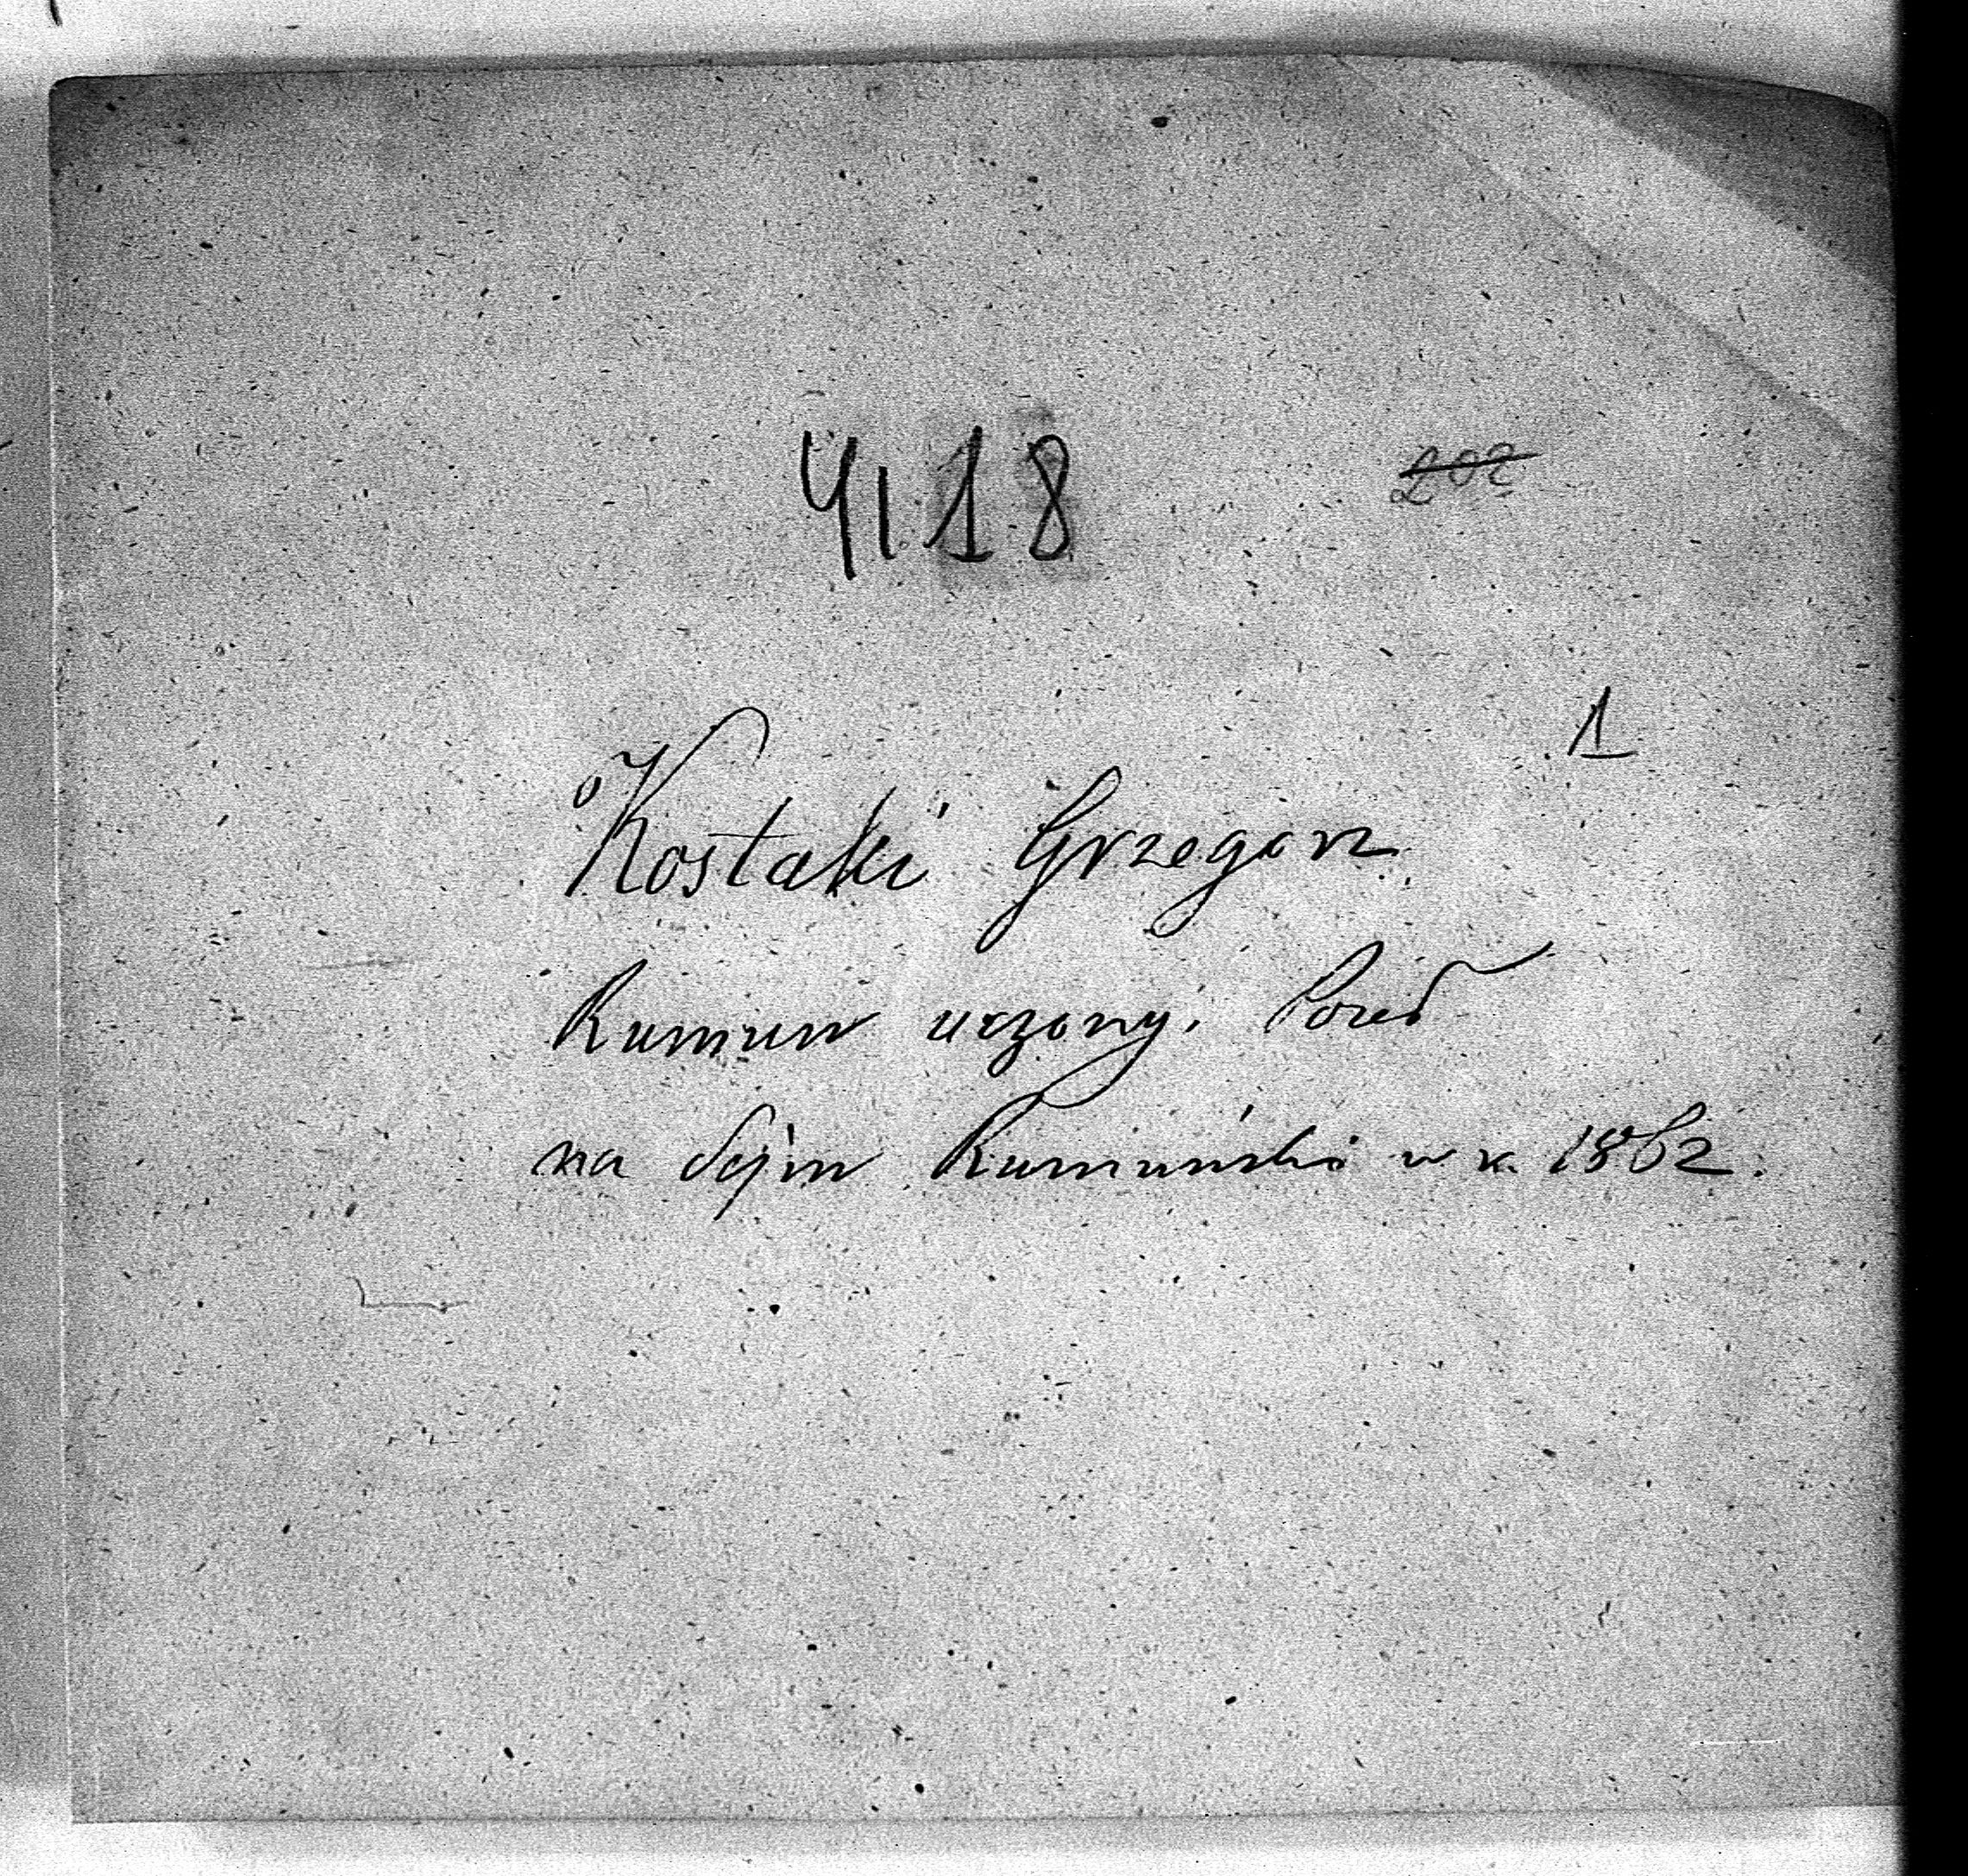 4118
202
1
Kostaki Grzegorz
Rumun uczony. Poseł
na Sejm Rumuński w r. 1862.